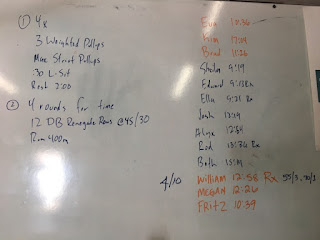 ① 4x
3 Weighted Pullups
Max Strict Pullups
30 L-Sit
Rest 2:00
② 4 rounds for time
12 DB Renegade Rows @45/30
Run 400m
Eva 10:36
Kim 17:14
Brad 11:26
9:19
Edward
Ella 9:21 Rx
Josh 13:19
12:54
Rod 13:36 Rx
Beth
4/10
WILLIAM 12:58 Rx
MEGAN 12:26
FRITZ 10:39